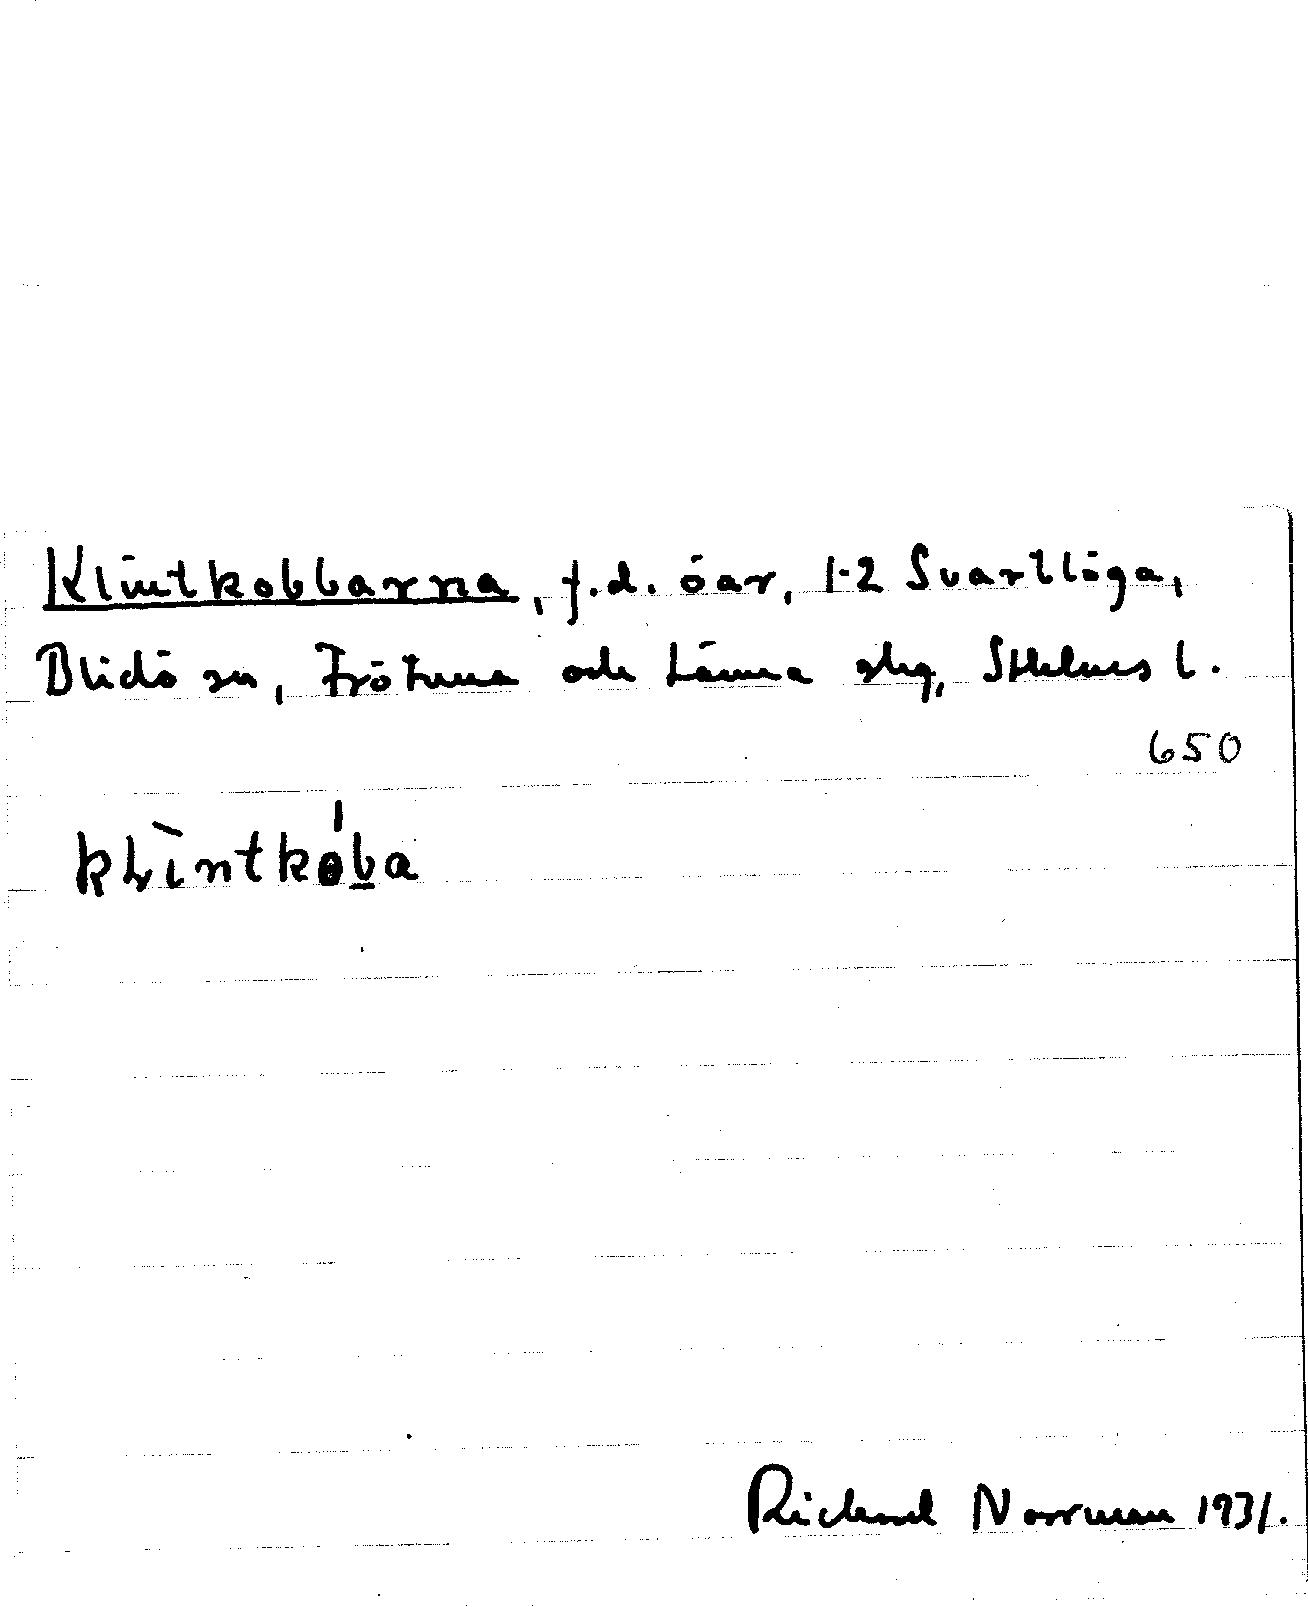 Klintkobbarna, f.d. öar, 1-2 Svartlöga,
Blidö sn, Frötuna och Länna skg, Sthlms l.
650
kḷìntkób̲a
Richard Norrman 1931.